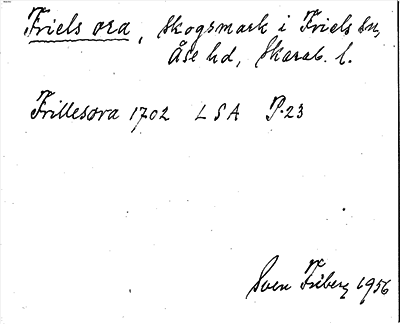 Friels ora, skogsmark i Friels sn,
Åse hd, Skarab. l.
Frillesora 1702 LSA P.23
Sven Friberg 1956